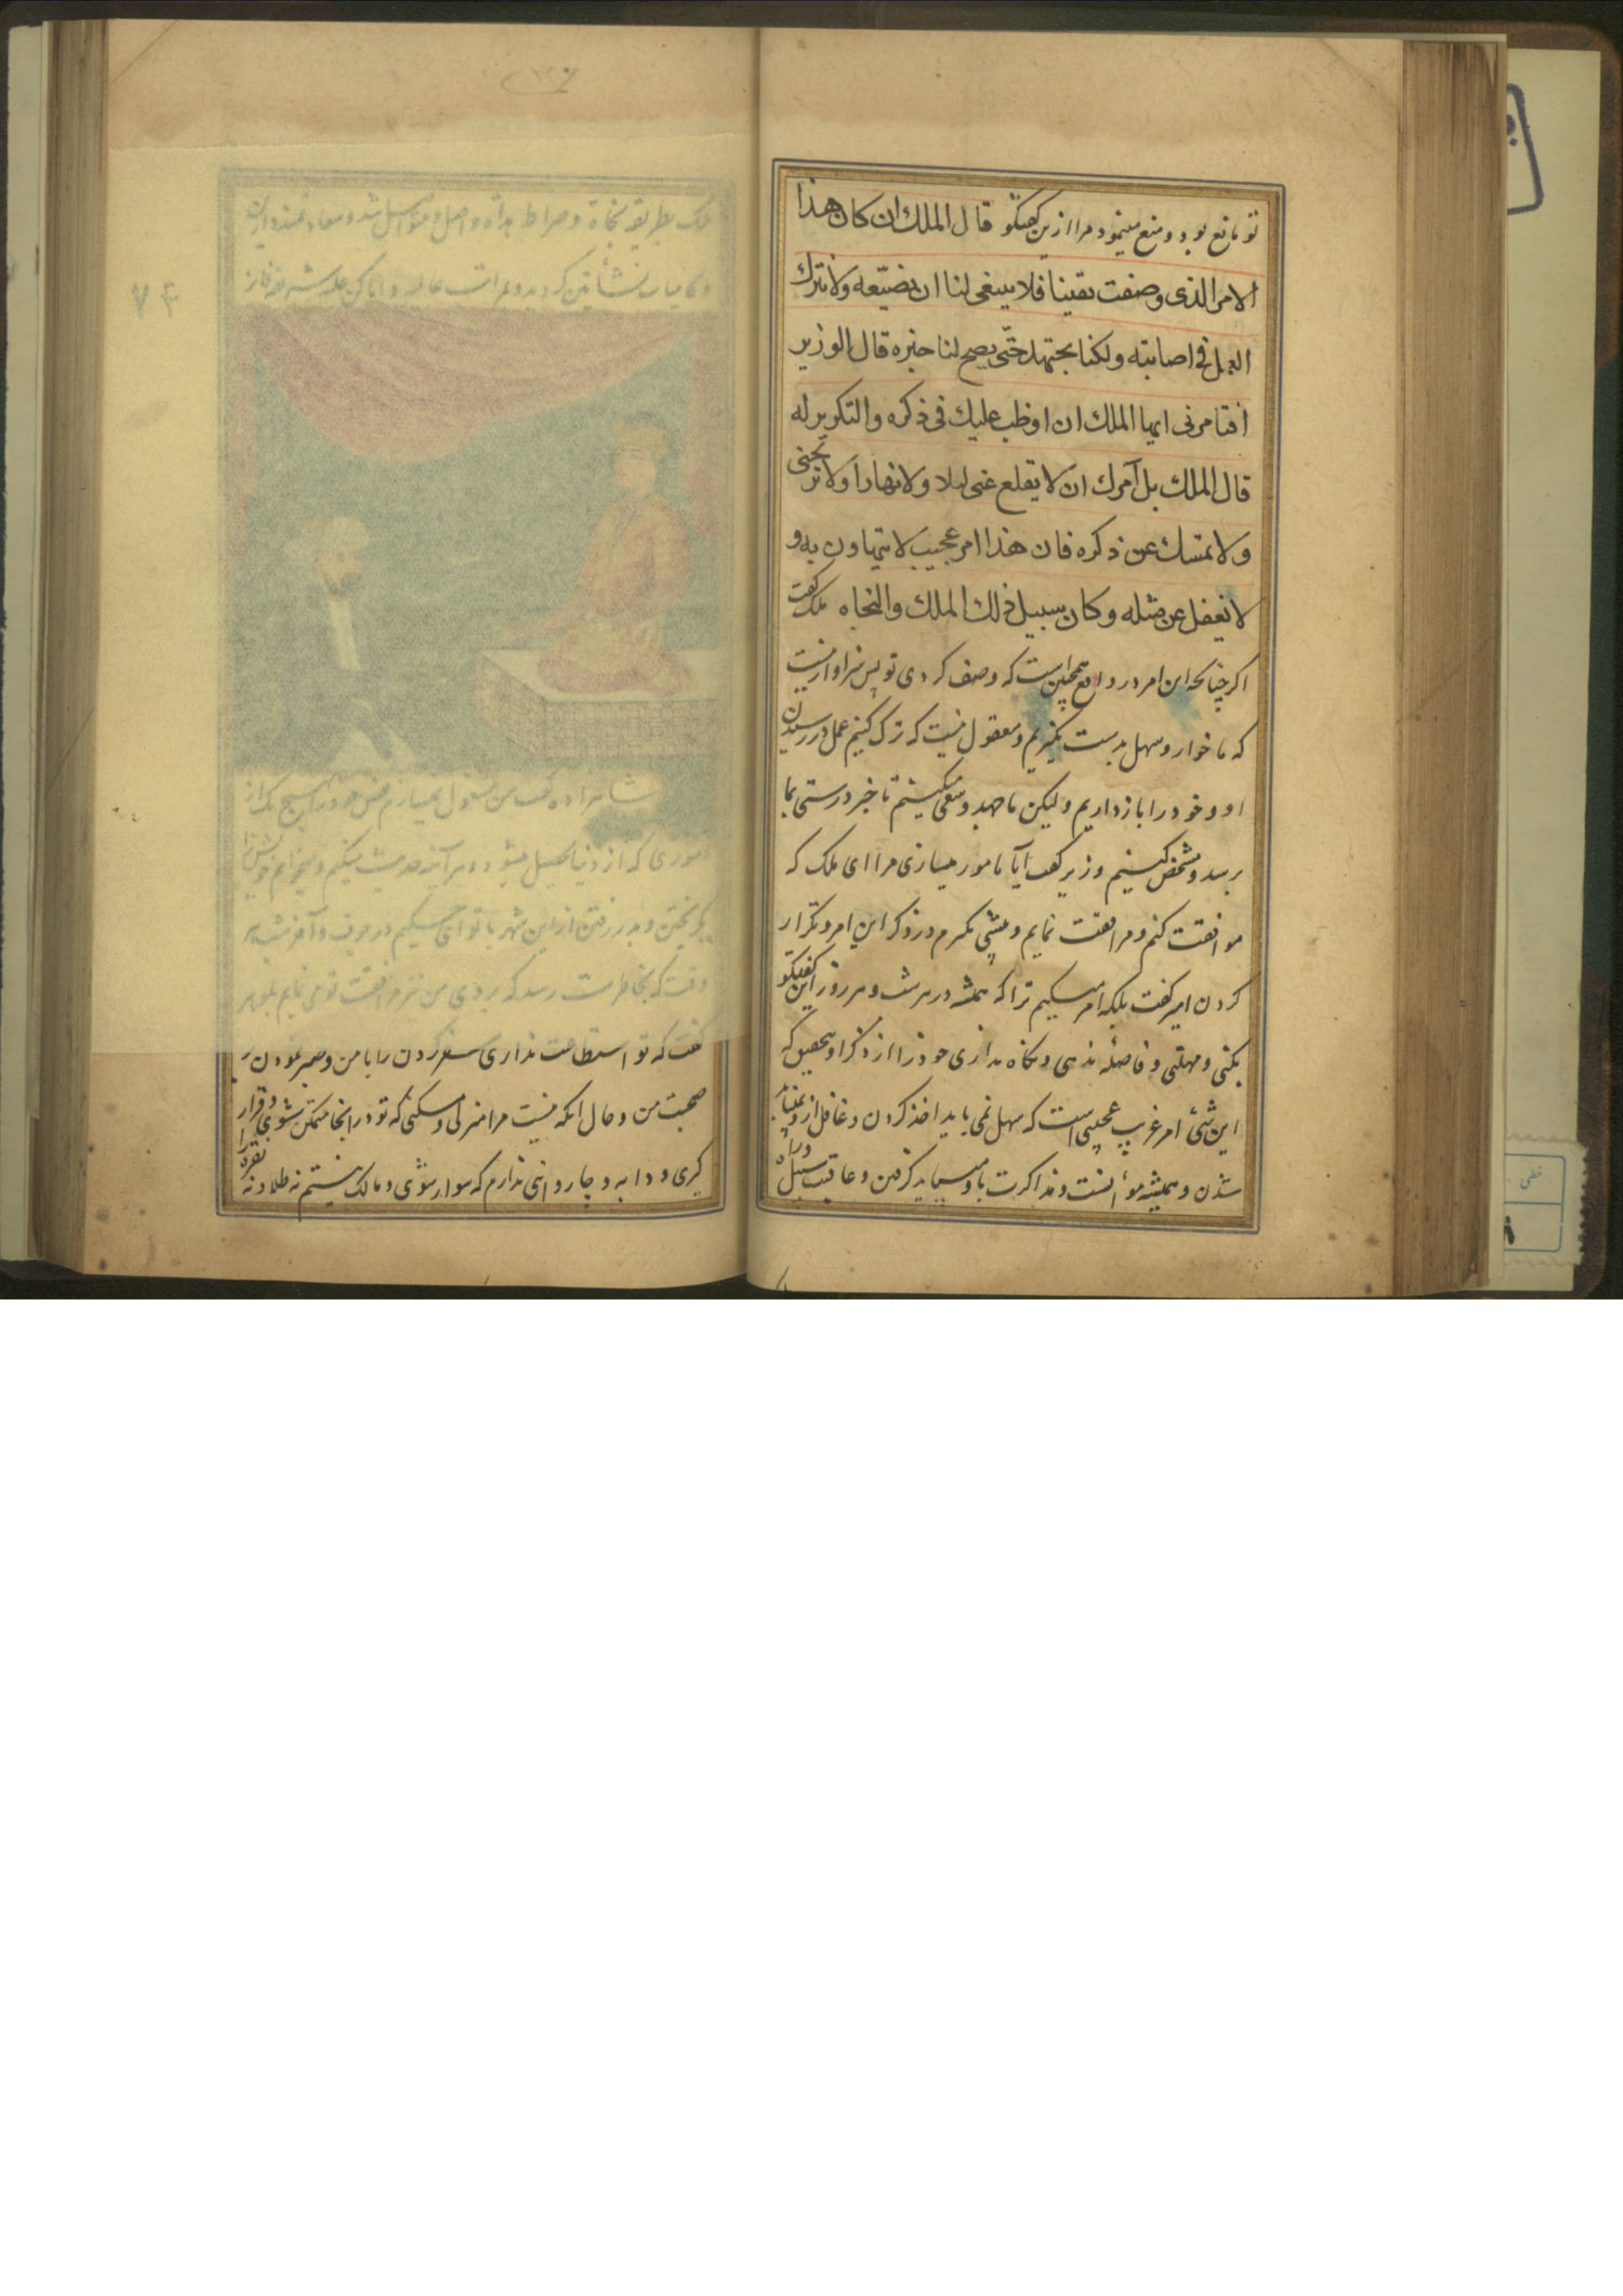 تو مانع بود و منع مینمود مرا ازین کفتکو قال الملك ان كان هذا
الامر الذی وصفت يقينا فلا ينبغی لنا ان نضيّعه ولا نترك
العمل فی اصابته ولكنا نجتهد حتّی يصح لنا خبره قال الوزير
افتامرنی ايها الملك ان اوظب عليك فی ذكره والتكرير له
قال الملك بل آمرك ان لا يقلع عنی ليلا ولا نهارا ولا تريحنی
ولا تمسك عن ذكره فان هذا امر عجيب لا يتهاون به و
لا يغفل عن مثله وكان سبيل ذلك الملك والنجاه ملک کفت
اکر چنانچه این امر در واقع همچنین است که وصف کردی تو پس سزاوار نیست
که ما خوار و سهل بدست بگیریم و معقول نیست که ترک کنیم عمل در رسیدن
او و خود را باز داریم و لیکن ما جهد و سعی میکنیم تا خبر درستی بما
برسد و مشخص کنیم وزیر کفت آیا مامور میسازی مرا ای ملک که
موافقت کنم و مرافقت نمایم و پیشی گیرم در ذکر این امر و تکرار
کردن امیر کفت بلکه امر میکنیم ترا که همیشه در هر شب و هر روز این کفتکو
بکنی و مهلتی و فاصله ندهی و نگاه نداری خود را از ذکر او بتحقیق که
این شئ امر غریب عجیبی است که سهل نمی باید اخذ کردن و غافل از و نمیباید
شدن و همیشه موانست و مذاکرت با و میباید کرفتن و عاقبت سبیل و راه
ملک بطریق نجاة و صراط هداة واصل و متواصل شد و سعادتمند دارین
شاهزاده کفت من مشغول نمیسازم نفس خود را بهیچ یک از
اموری که از دنیا تحصیل میشود و هر آینه حدیث میکنم و میخواهم خویش را
کریختن و بدر رفتن از این شهر با تو ای حکیم در جوف و آخر شب هر
وقت که بخاطرت رسد که بروی من نیز مرافقت تو می نایم بلوهر
کفت که تو استطاعت نداری سفر کردن را با من و صبر نمودن ر
صحبت من و حال انکه نیست مرا منزلی و مسکنی که تو در انجا متمکن شوی و قرار
کیری و دابه و چاروائی ندارم که سوار شوی و مالک نیستم نه طلا و نه نقره را